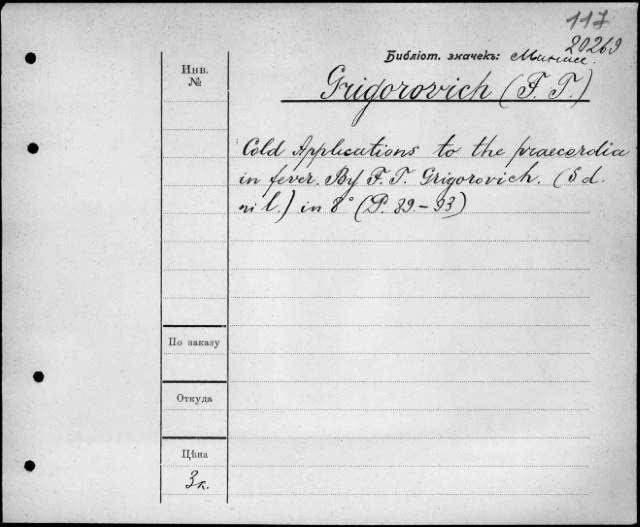 117
20269
Библіот. значекъ:
Инв.
№
Grigorovich (F. T.)
Cold Applications to the praecordia
in fever. By F. T. Grigorovich. (S d.
ni l.) in 8° (P. 89.-93)
По заказу
Откуда
Цѣна
3к.